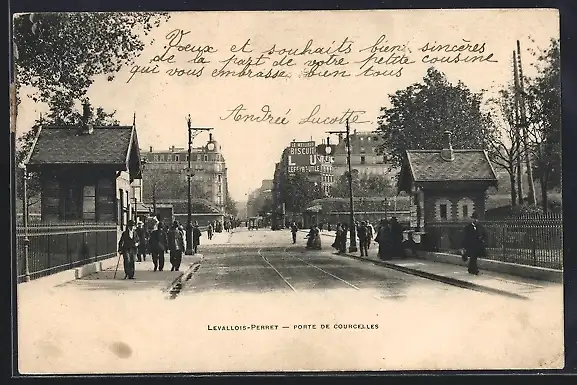 Voeux et souhaits bien sincères
de la part de votre petite cousine
qui vous embrasse bien tous
Andrée Lacotte
LE MEILLEUR
BISCUIT
LU
LEFÈVRE-UTILE
LEVALLOIS-PERRET — PORTE DE COURCELLES